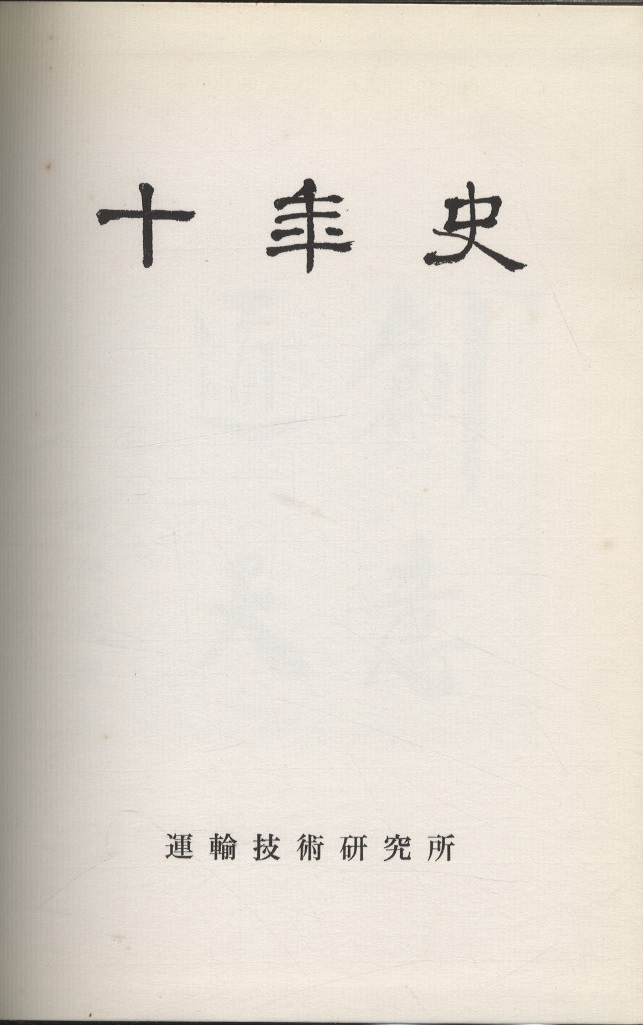 十年史
運輸技術研究所